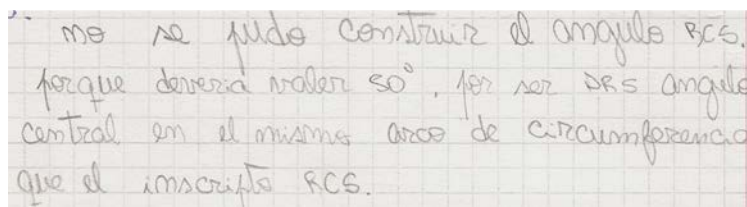 no se pudo construir el angulo RCS.
porque deveria valer 50°, por ser DRS angulo
central en el mismo arco de circumferencia
que el inscripto RCS.